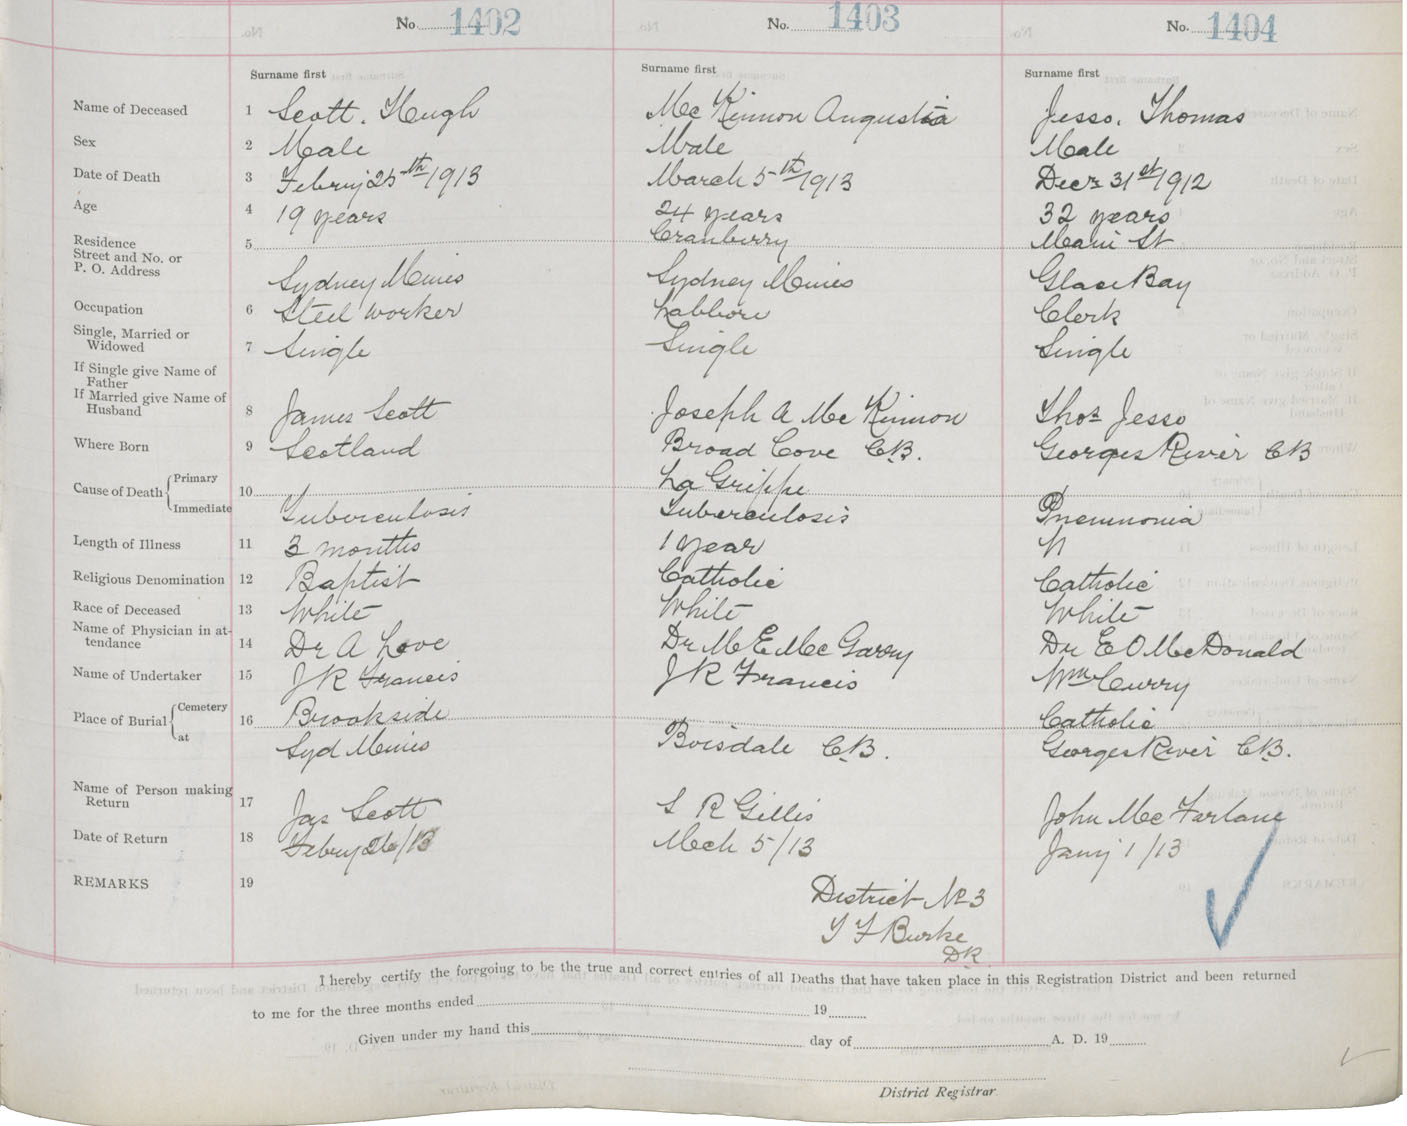 No. 1402 No. 1403 No. 1404
Surname first Surname first Surname first
Name of Deceased 1 Scott, Hugh McKinnon Augustia Jesso, Thomas
Sex 2 Male Male Male
Date of Death 3 Febry 25th/1913 March 5th/1913 Decr 31st/1912
Age 4 19 years 24 years 32 years
Residence 5 Cranberry Main St
Street and No. or
P. O. Address Sydney Mines Sydney Mines Glace Bay
Occupation 6 Steel worker Labbore Clerk
Single, Married or
Widowed 7 Single Single Single
If Single give Name of
Father
If Married give Name of
Husband 8 James Scott Joseph A McKinnon Thos Jesso
Where Born 9 Scotland Broad Cove C.B. Georges River CB
Cause of Death Primary 10 La Grippe
Immediate Tuberculosis Tuberculosis Pneumonia
Length of Illness 11 3 months 1 year
Religious Denomination 12 Baptist Catholic Catholic
Race of Deceased 13 White White White
Name of Physician in at-
tendance 14 Dr A Love Dr M E McGarry Dr E O McDonald
Name of Undertaker 15 J R Francis J R Francis Wm Curry
Place of Burial Cemetery 16 Brookside Catholic
at Syd Mines Boisdale C.B. Georges River C.B.
Name of Person making
Return 17 Jas Scott S R Gillis John McFarlane
Date of Return 18 Febry 26/13 Mech 5/13 Jany 1/13
REMARKS 19
District No 3
T F Burke
DR
I hereby certify the foregoing to be the true and correct entries of all Deaths that have taken place in this Registration District and been returned
to me for the three months ended 19
Given under my hand this day of A. D. 19
District Registrar.